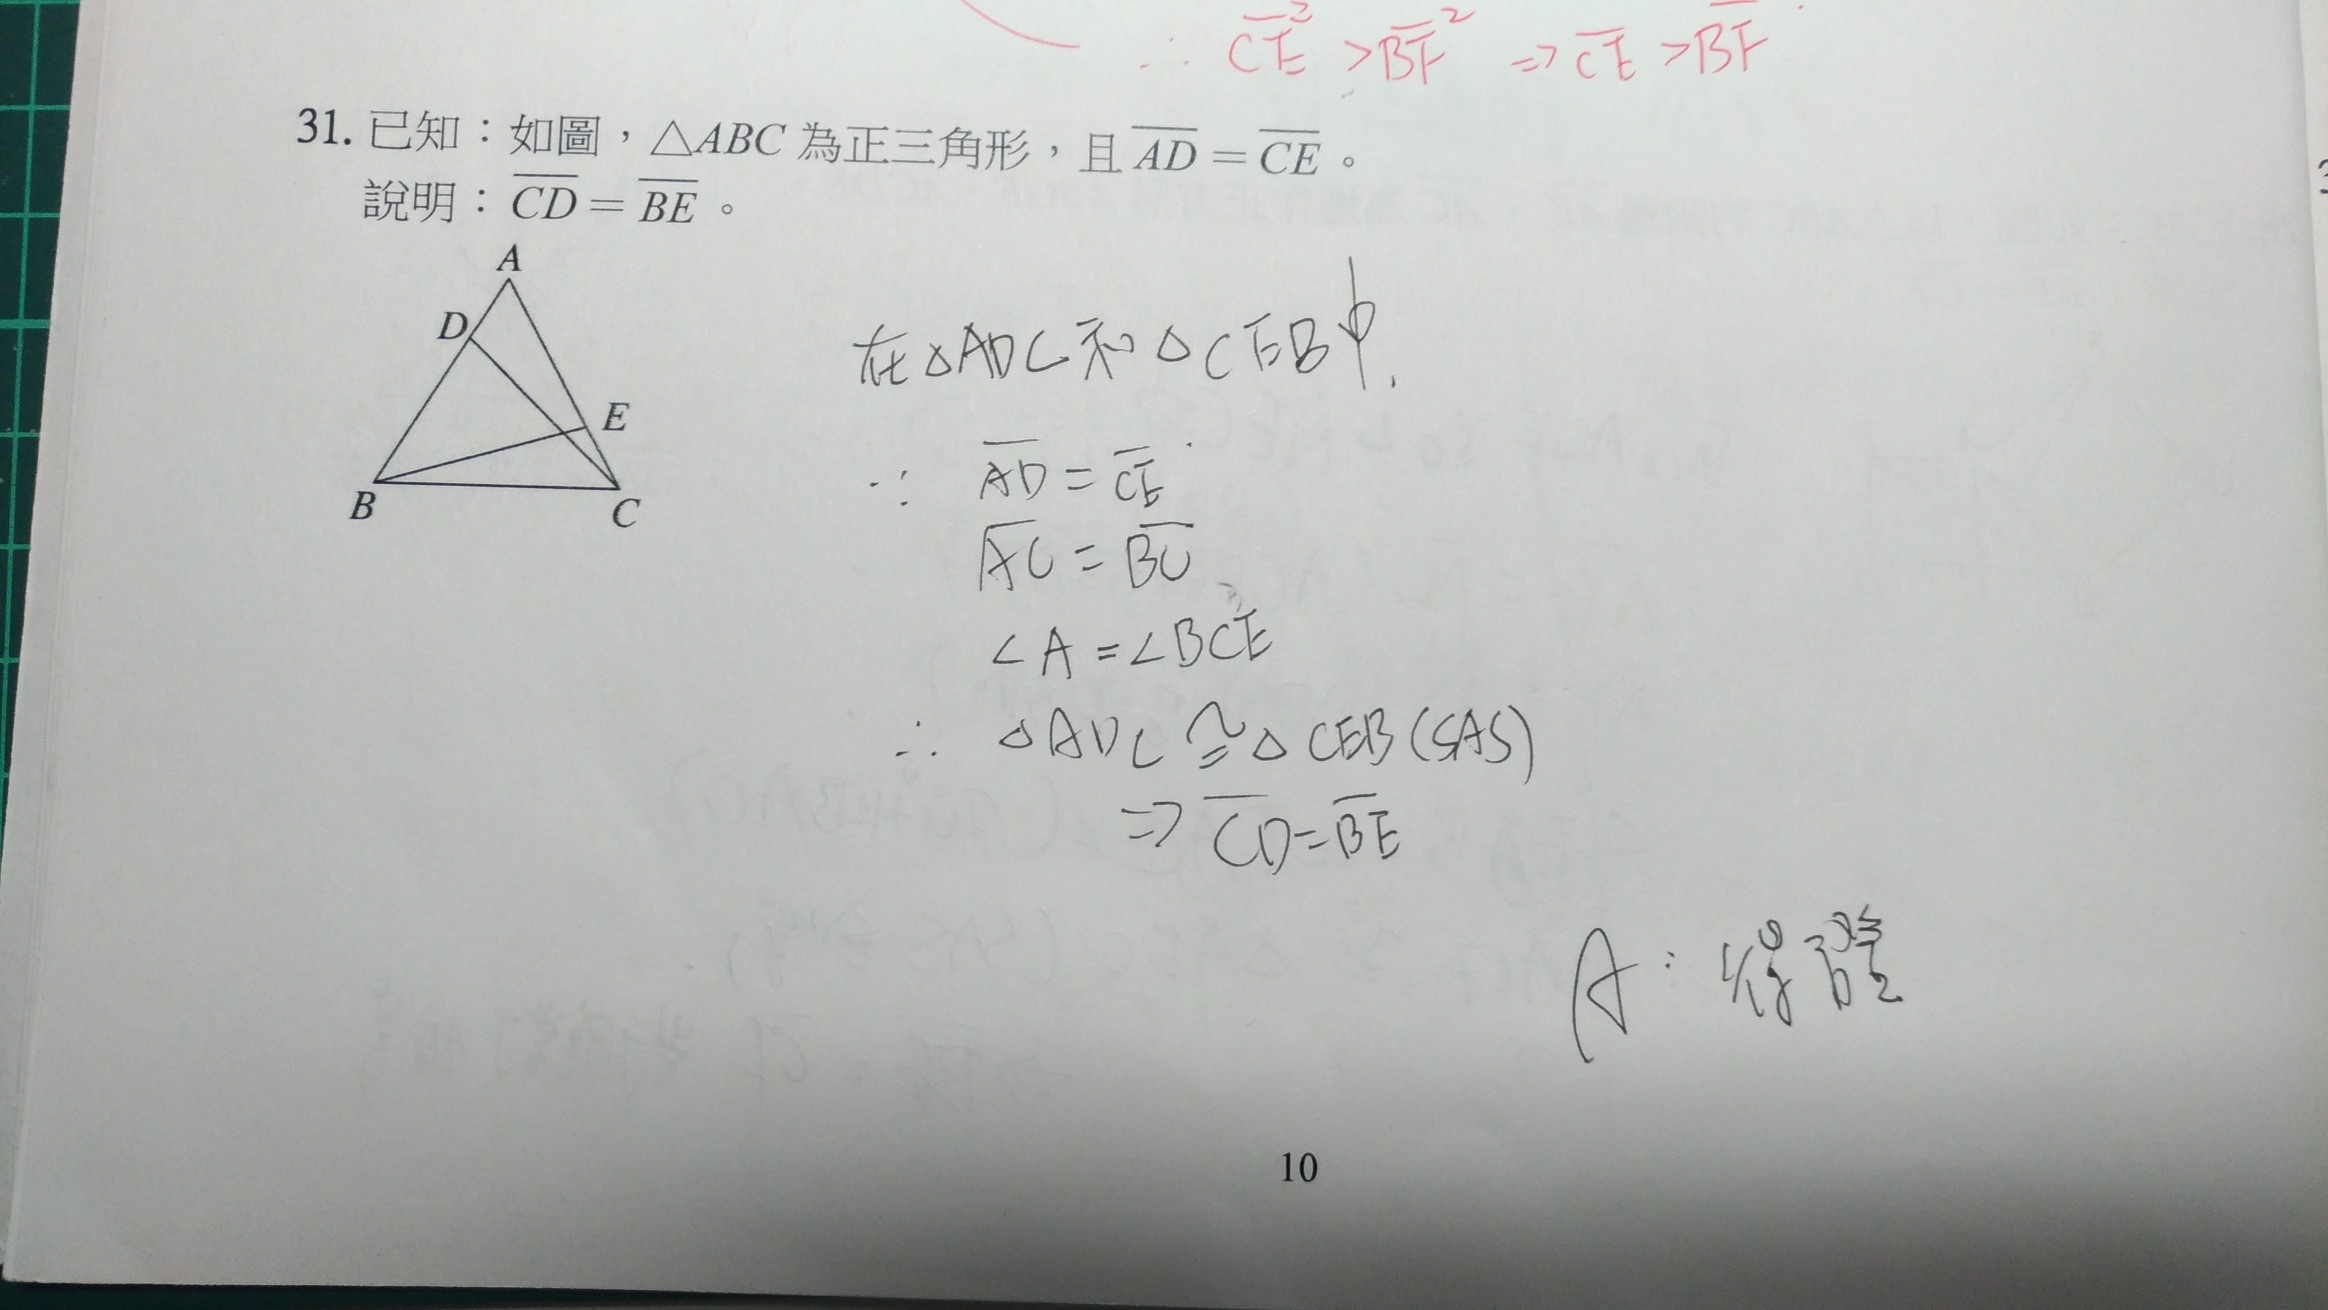 ∴ C̅E̅² > B̅F̅² ⇒ C̅E̅ > B̅F̅
31. 已知：如圖，△ABC 為正三角形，且 A̅D̅ = C̅E̅。
說明：C̅D̅ = B̅E̅。
A
D
E
B
C
在△ADC和△CEB中,
∵ A̅D̅ = C̅E̅
A̅C̅ = B̅C̅
∠A = ∠BCE
∴ △ADC ≅ △CEB (SAS)
⇒ C̅D̅ = B̅E̅
A：得證
10